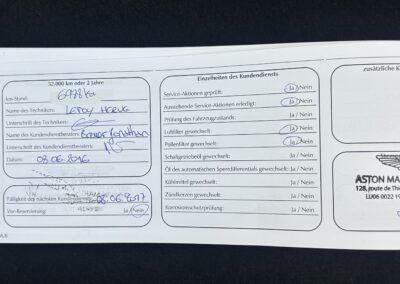 32.000 km oder 2 Jahre
km-Stand: 6978 km
Name des Technikers: LEROY HERVE
Unterschrift des Technikers:
Name des Kundendienstberaters: Jonathan
Unterschrift des Kundendienstberaters:
Datum: 08.06.2016
Fälligkeit des nächsten Kundendienstes: 08.06.2017
Vor-Reservierung: Ja / Nein
Einzelheiten des Kundendiensts
Service-Aktionen geprüft: Ja / Nein
Ausstehende Service-Aktionen erledigt: Ja / Nein
Prüfung des Fahrzeugzustands: Ja / Nein
Luftfilter gewechselt: Ja / Nein
Pollenfilter gewechselt: Ja / Nein
Schaltgetriebeöl gewechselt: Ja / Nein
Öl des automatischen Sperrdifferentials gewechselt: Ja / Nein
Kühlmittel gewechselt: Ja / Nein
Zündkerzen gewechselt: Ja / Nein
Korrosionsschutzprüfung: Ja / Nein
zusätzliche K
ASTON MA
128, route de Thi
LU06 0022 19